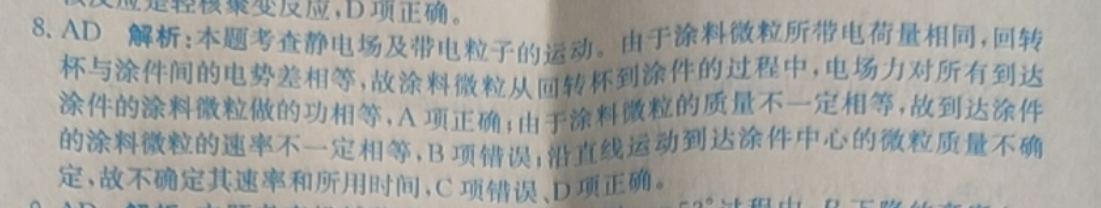 应是轻核聚变反应,D项正确。
8. AD 解析:本题考查静电场及带电粒子的运动。由于涂料微粒所带电荷量相同,回转
杯与涂件间的电势差相等,故涂料微粒从回转杯到涂件的过程中,电场力对所有到达
涂件的涂料微粒做的功相等,A项正确;由于涂料微粒的质量不一定相等,故到达涂件
的涂料微粒的速率不一定相等,B项错误;沿直线运动到达涂件中心的微粒质量不确
定,故不确定其速率和所用时间,C项错误、D项正确。